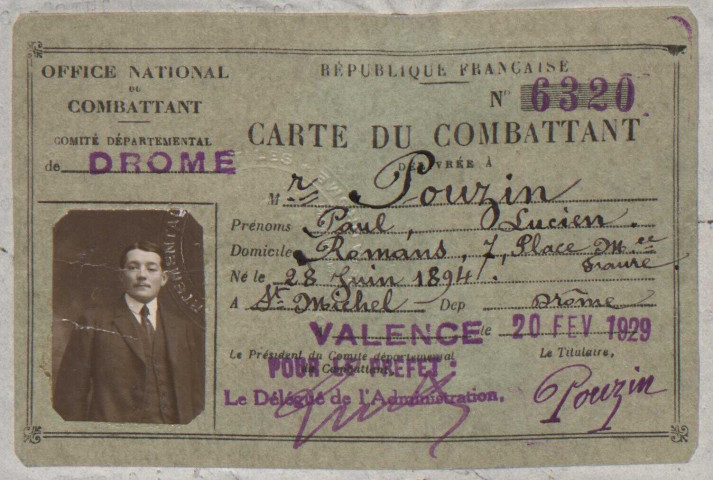 OFFICE NATIONAL
DU
COMBATTANT
COMITÉ DÉPARTEMENTAL
de DROME
RÉPUBLIQUE FRANÇAISE
N° 6320
CARTE DU COMBATTANT
DÉLIVRÉE À
Mr Pouzin
Prénoms Paul, Lucien.
Domicile Romans, 7, Place Mce Faure
Né le 28 Juin 1894.
A St Michel Dep Drôme
VALENCE le 20 FEV 1929
Le Président du Comité départemental
du Combattant,
Le Titulaire,
POUR LE PREFET:
Le Délégué de l'Administration,
Pouzin